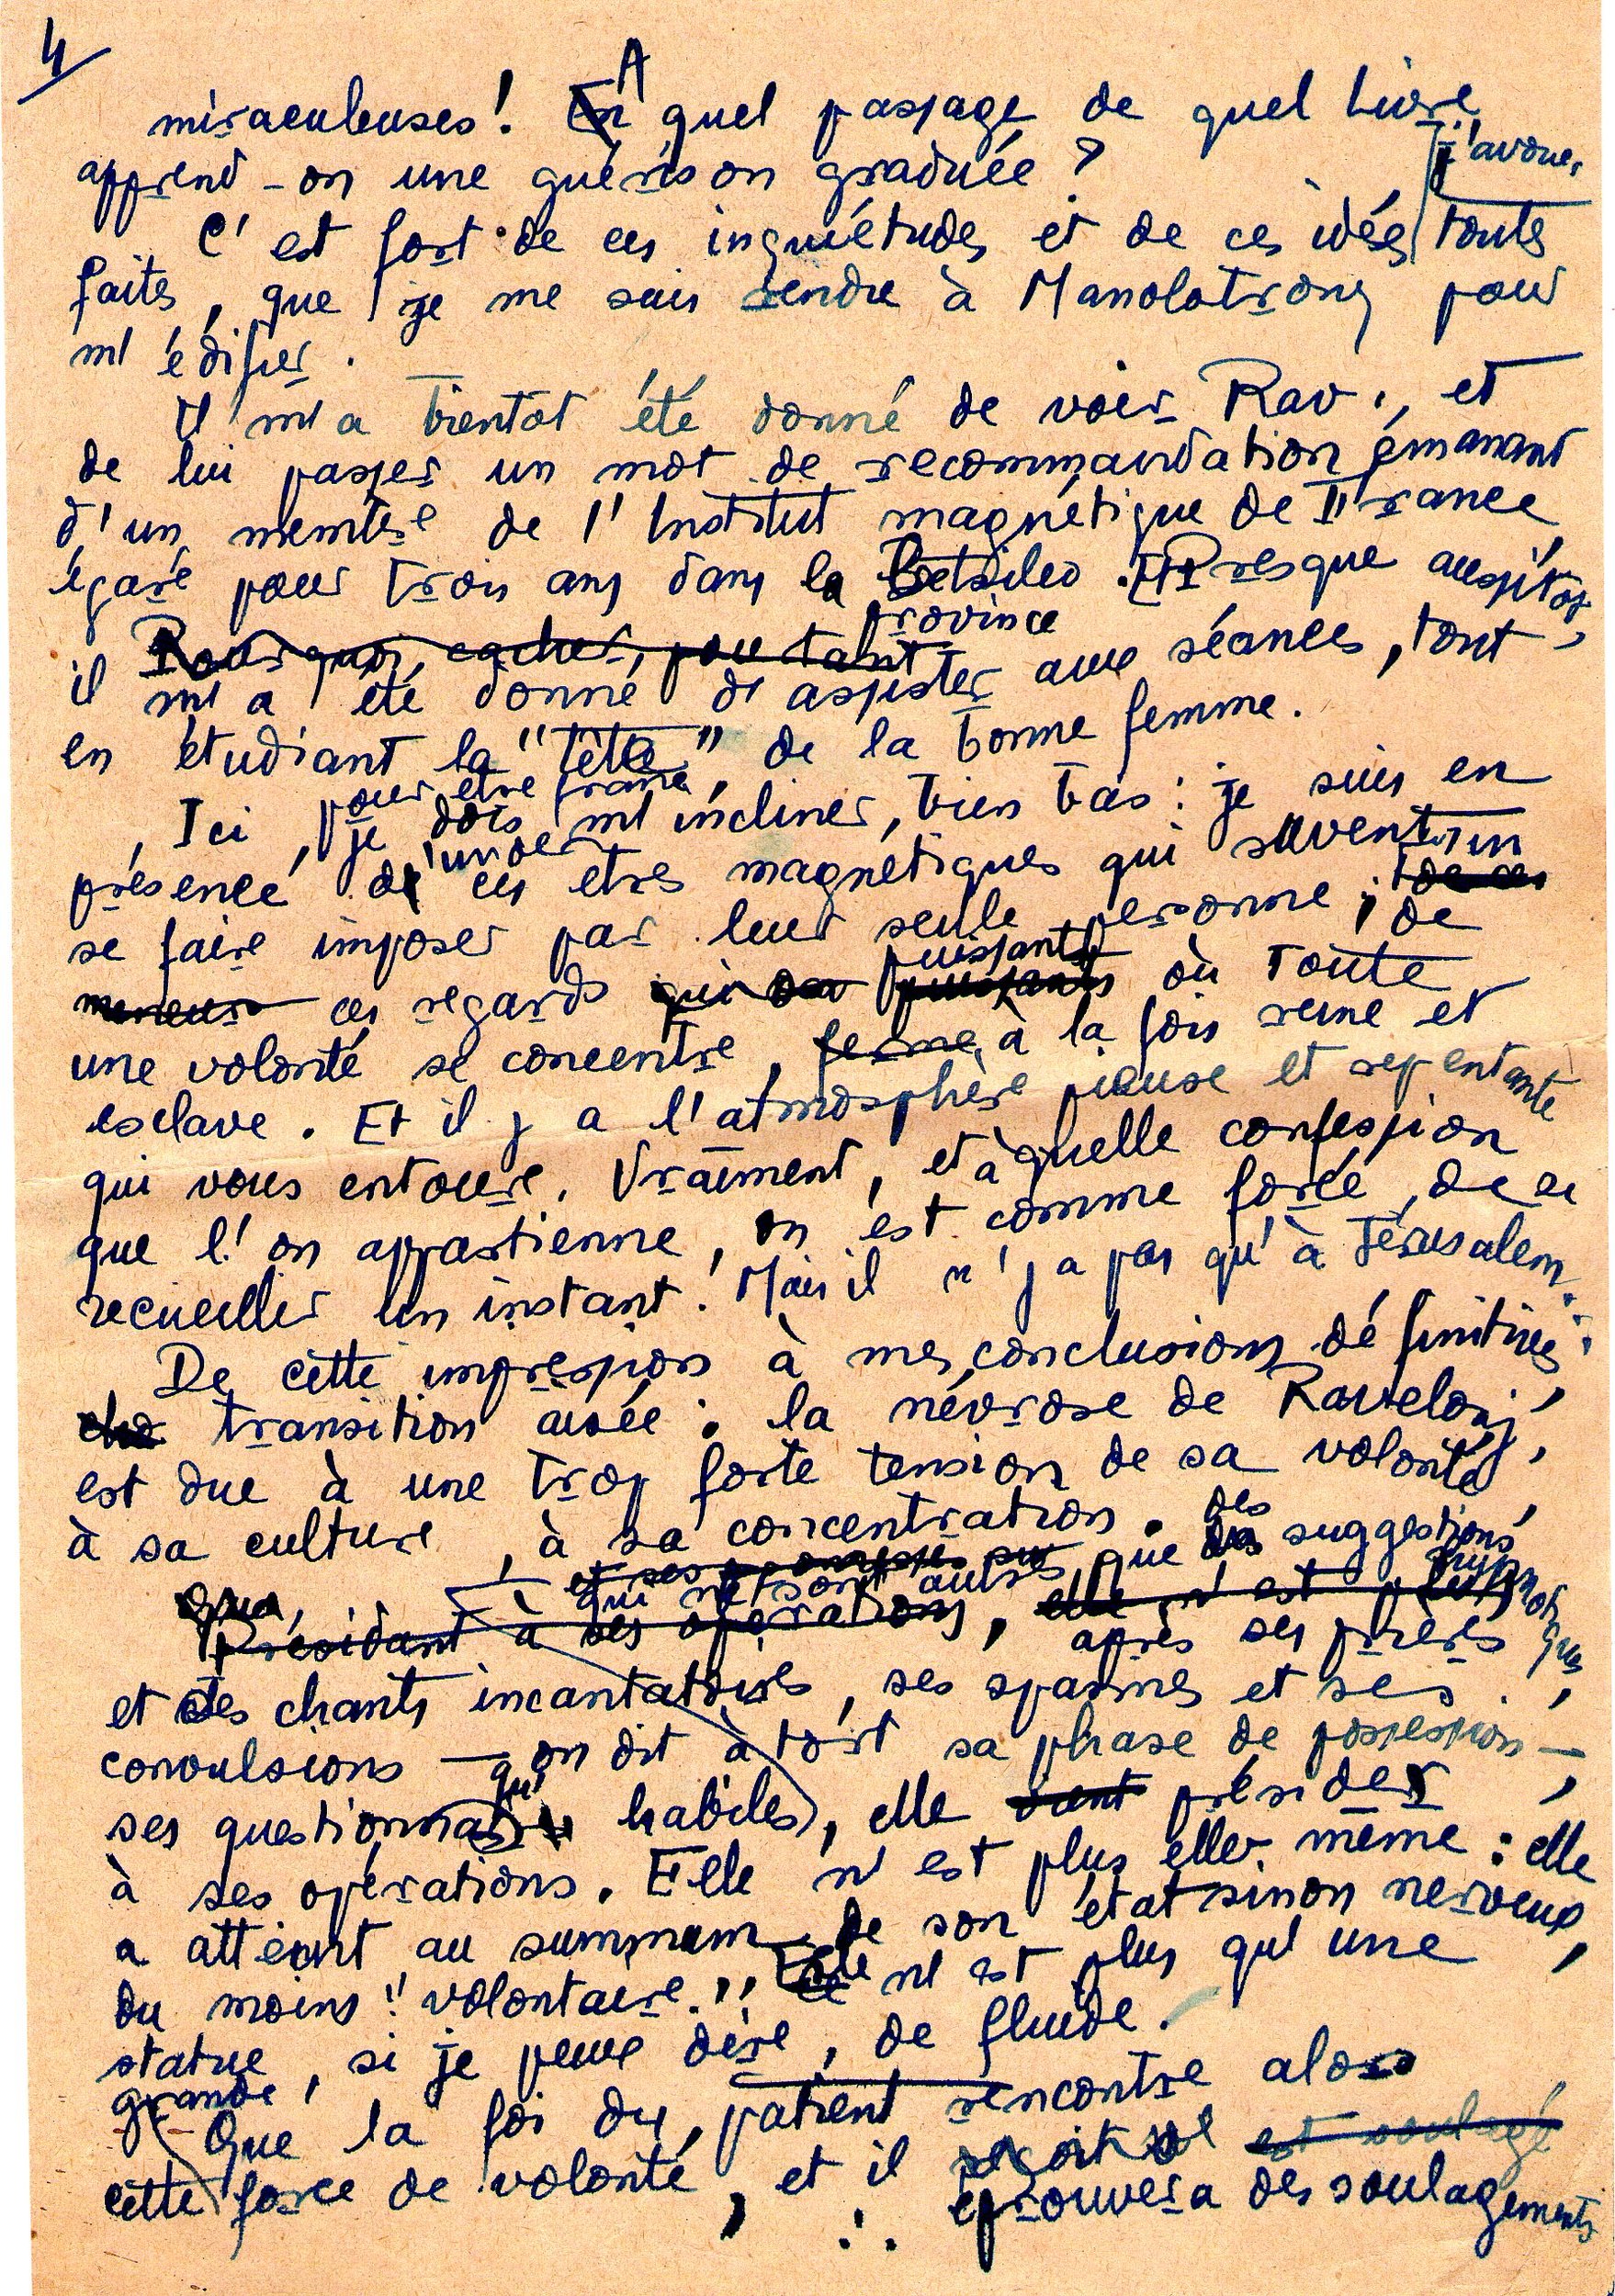 4
miraculeuses! ~~En~~ A quel passage de quel Livre
apprend-on une guérison graduée?
C'est fort de ces inquiétudes et de ces idées, j'avoue, toutes
faites, que je me suis rendre à Manolotrony pour
m'édifier.
Il m'a bientôt été donné de voir Rav., et
de lui passer un mot de recommandation émanant
d'un membre de l'Institut magnétique de France
égaré pour trois ans dans la province Betsileo. Presque aussitôt,
~~Pourquoi, cacher, pourtant~~
il m'a été donné d'assister aux séances, tout
en étudiant la "tête" de la bonne femme.
Ici, pour être franc, je dois m'incliner, bien bas: je suis en
présence de l'un de ces êtres magnétiques qui savent
se faire imposer par leur seule personne; de
ces regards puissants où toute
une volonté se concentre, ~~ferme,~~ à la fois reine et
esclave. Et il y a l'atmosphère pieuse et repentante
qui vous entoure. Vraiment, et à quelle confession
que l'on appartienne, on est comme forcé, de se
recueillir un instant. Mais il n'y a pas qu'à Jérusalem..
De cette impression à mes conclusions définitives,
transition aisée: la névrose de Raveloj,
est due à une trop forte tension de sa volonté,
à sa culture, à sa concentration.
qui ne sont autres que des suggestions hypnotiques
~~Présidant à ses opérations, elle n'est plus~~ après ses prières
et ses chants incantatoires, ses spasmes et ses
convulsions — qu'on dit à tort sa phrase de possession —,
ses questionnaires habiles, elle ~~vient~~ présider
à ses opérations. Elle n'est plus elle-même: elle
a atteint au summum de son état sinon nerveux,
du moins "volontaire". Elle n'est plus qu'une
statue, si je peux dire, de fluide.
Que la foi du patient rencontre alors
cette grande force de volonté, et il ~~est soulagé~~
éprouvera des soulagements